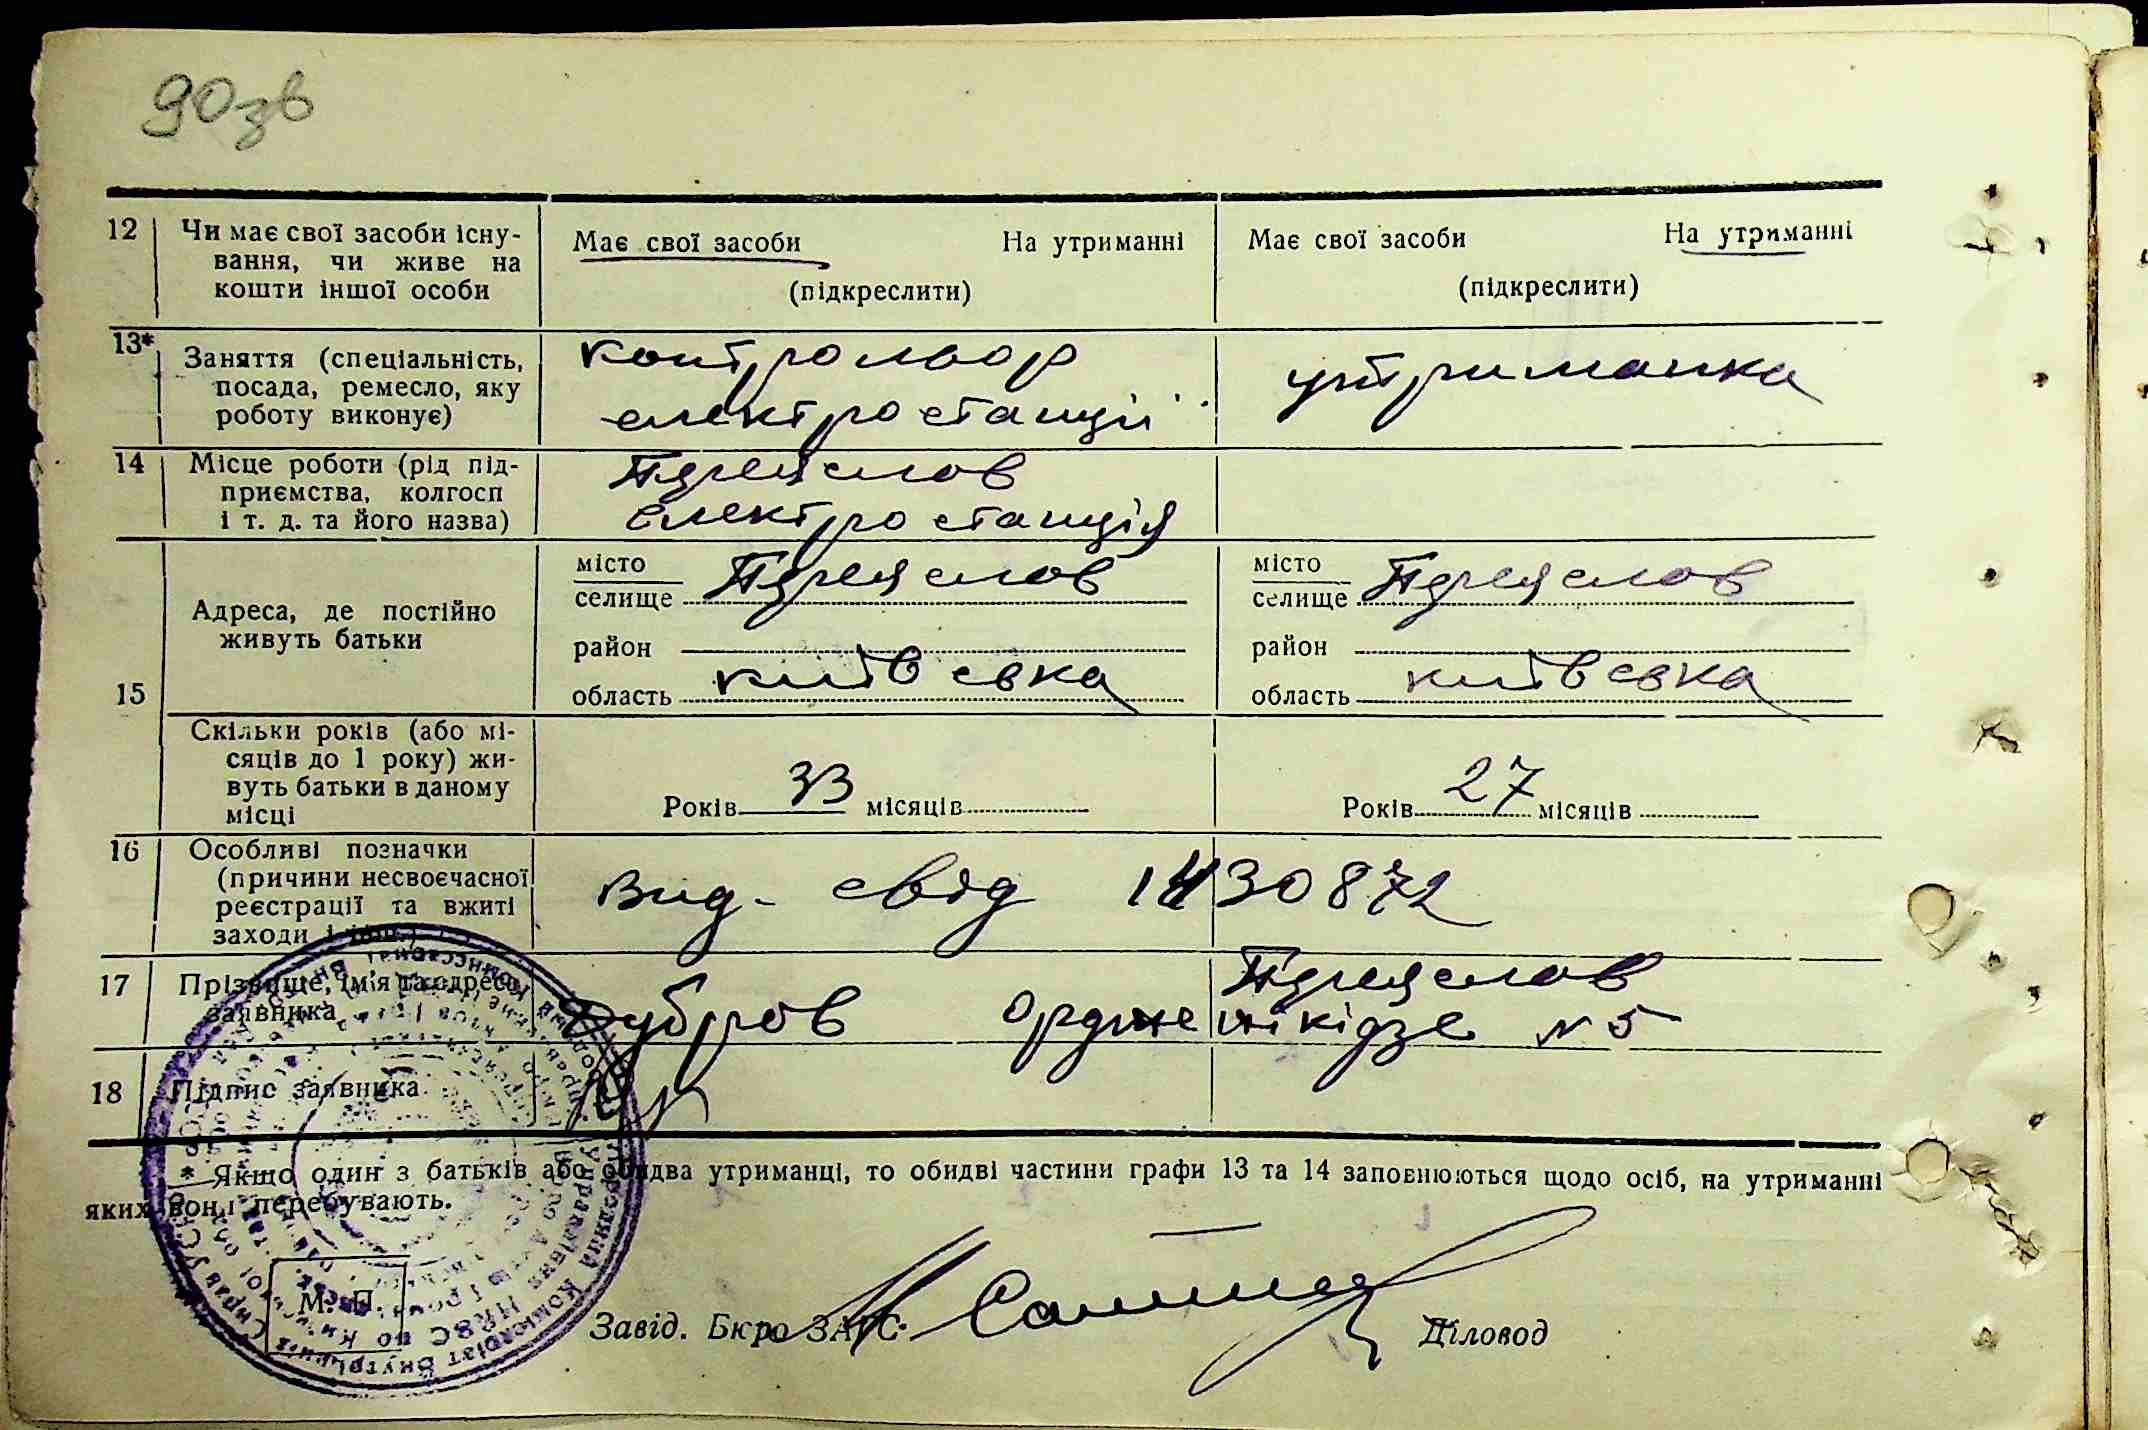 90зв
12 Чи має свої засоби існу-
вання, чи живе на
кошти іншої особи
Має свої засоби На утриманні
(підкреслити)
Має свої засоби На утриманні
(підкреслити)
13* Заняття (спеціальність,
посада, ремесло, яку
роботу виконує)
контрольор
електростанції
утриманка
14 Місце роботи (рід під-
приємства, колгосп
і т. д. та його назва)
Переяслов
електростанція
15
Адреса, де постійно
живуть батьки
місто
селище Переяслов
район
область київсвка
місто
селище Переяслов
район
область київсвка
Скільки років (або мі-
сяців до 1 року) жи-
вуть батьки в даному
місці
Років 33 місяців
Років 27 місяців
16 Особливі позначки
(причини несвоєчасної
реєстрації та вжиті
заходи і інш.)
Вид. свід 1430872
17 Прізвище, ім'я та адреса
заявника
Переяслов
Дубров Орджонікідзе № 5
18 Підпис заявника
* Якщо один з батьків або обидва утриманці, то обидві частини графи 13 та 14 заповнюються щодо осіб, на утриманні
яких вони перебувають.
М. П.
Завід. Бюро ЗАГС
Діловод